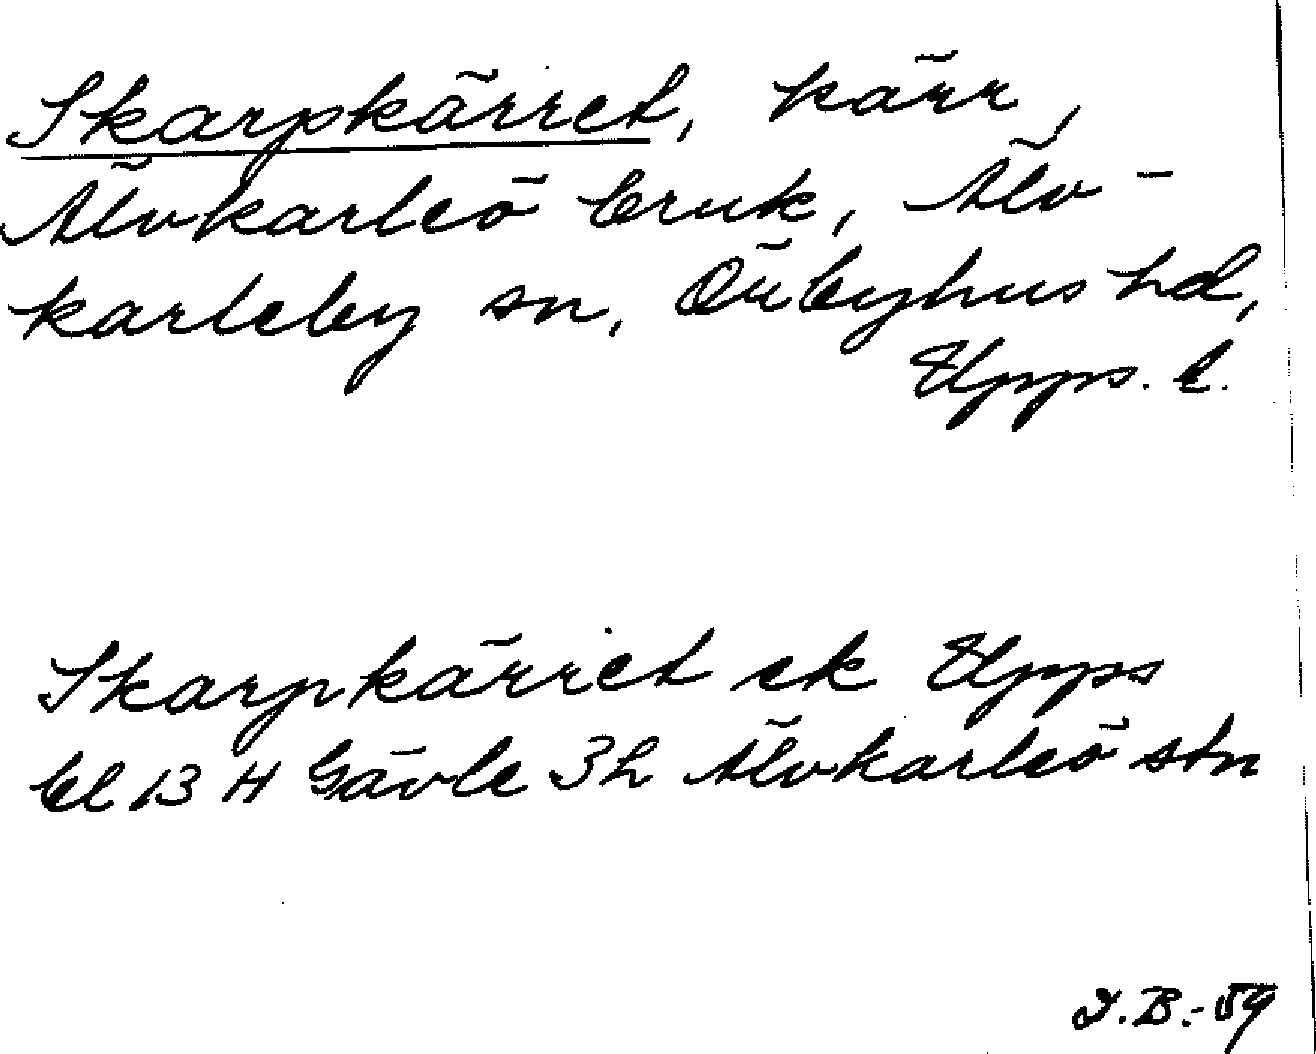 Skarpkärret, kärr,
Älvkarleö bruk, Älv-
karleby sn, Örbyhus hd,
Upps. l.
Skarpkärret ek Upps
bl 13 H Gävle 3h Älvkarleö stn
I.B.-59